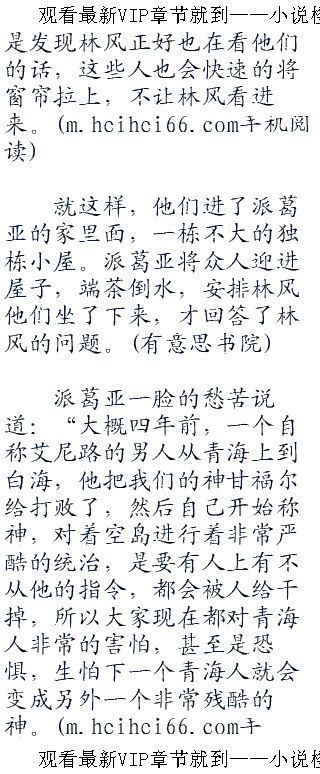 观看最新VIP章节就到——小说检
是发现林风正好也在看他们
的话，这些人也会快速的将
窗帘拉上，不让林风看进
来。(m.hcihci66.com手机阅
读)
就这样，他们进了派葛
亚的家里面，一栋不大的独
栋小屋。派葛亚将众人迎进
屋子，端茶倒水，安排林风
他们坐了下来，才回答了林
风的问题。(有意思书院)
派葛亚一脸的愁苦说
道：“大概四年前，一个自
称艾尼路的男人从青海上到
白海，他把我们的神甘福尔
给打败了，然后自己开始称
神，对着空岛进行着非常严
酷的统治，是要有人上有不
从他的指令，都会被人给干
掉，所以大家现在都对青海
人非常的害怕，甚至是恐
惧，生怕下一个青海人就会
变成另外一个非常残酷的
神。(m.hcihci66.com手
观看最新VIP章节就到——小说检